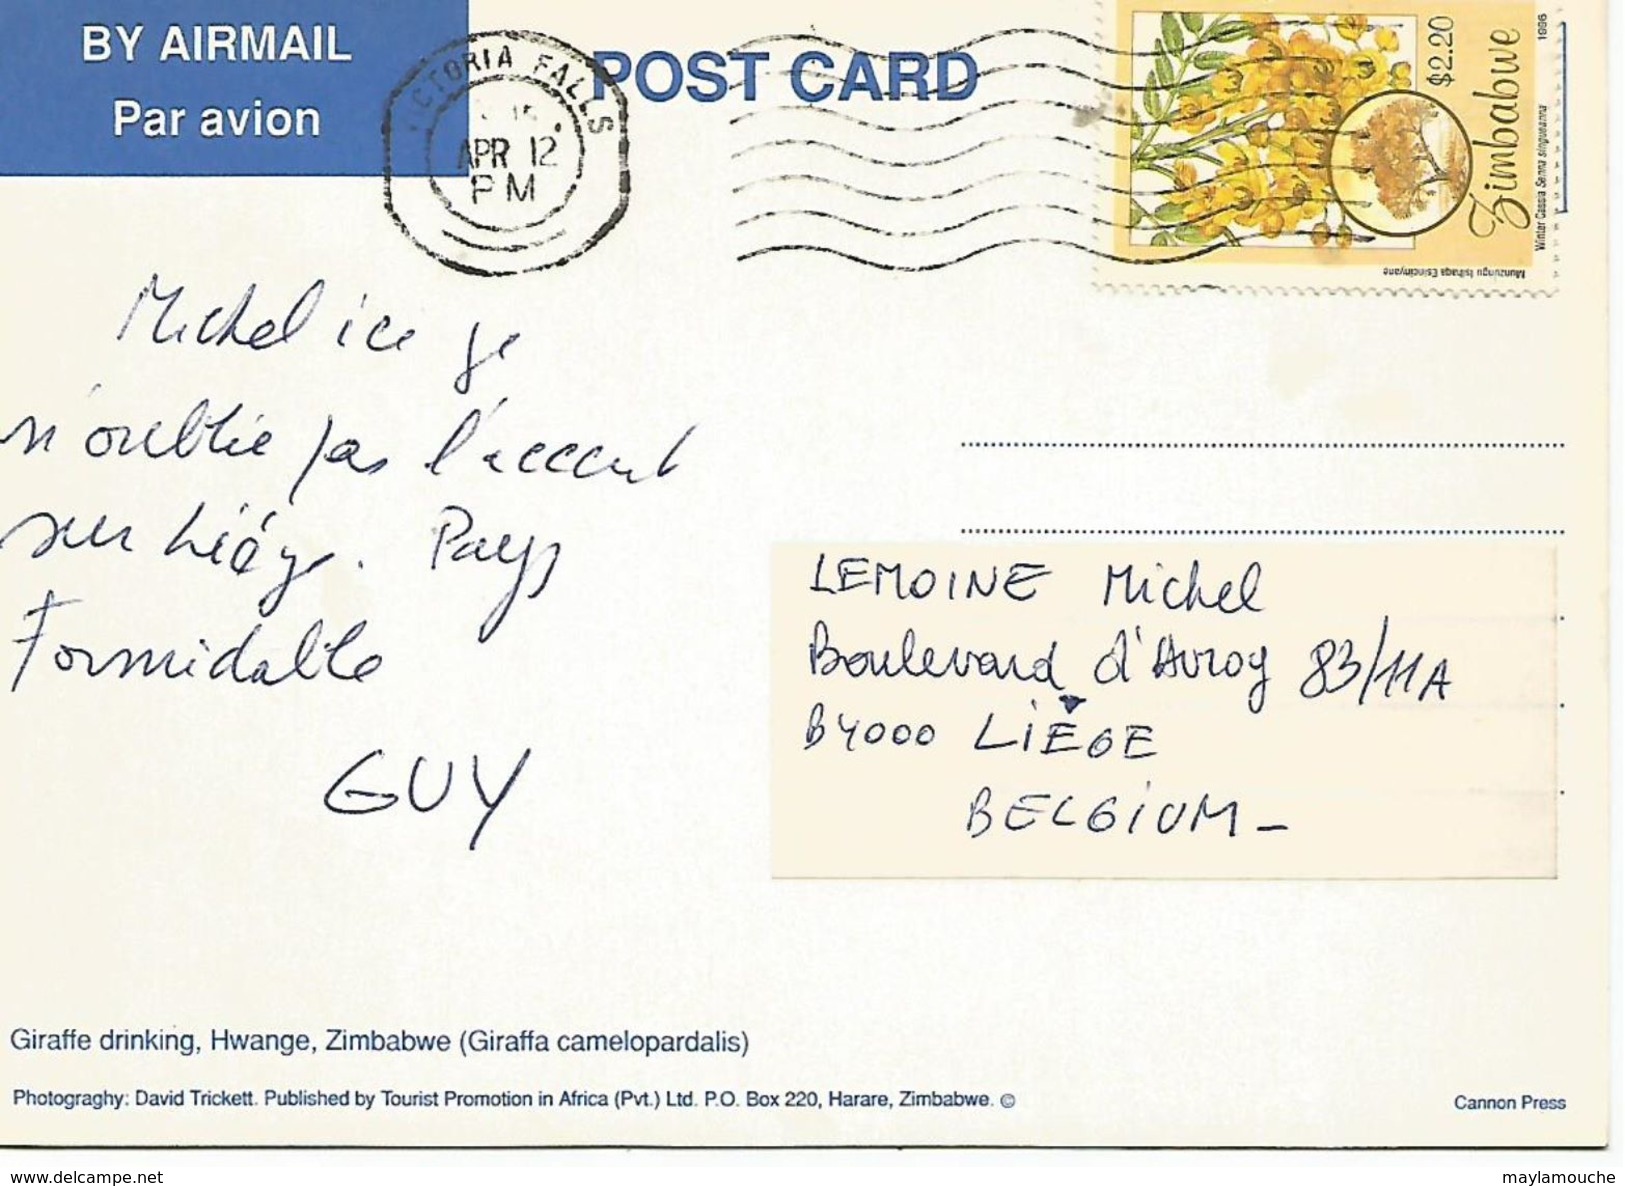 BY AIRMAIL
Par avion
VICTORIA FALLS
APR 12
PM
POST CARD
$2.20
Zimbabwe
1996
Winter Cassia Senna singueanna
Munzungu Isihaqa Esincinyane
Michel ici je
n'oublie pas l'accent
sur Liége. Pays
Formidable
GUY
LEMOINE Michel
Boulevard d'Avroy 83/11A
B4000 LIÈGE
BELGIUM -
Giraffe drinking, Hwange, Zimbabwe (Giraffa camelopardalis)
Photograghy: David Trickett. Published by Tourist Promotion in Africa (Pvt.) Ltd. P.O. Box 220, Harare, Zimbabwe. ©
Cannon Press
www.delcampe.net
maylamouche